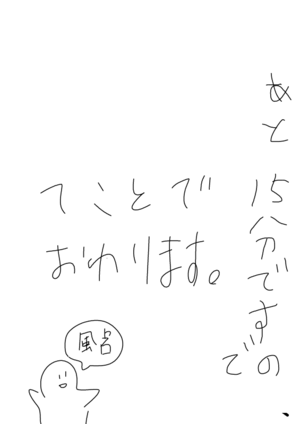 あと15分ですの
で、
てことで
おわります。
風呂